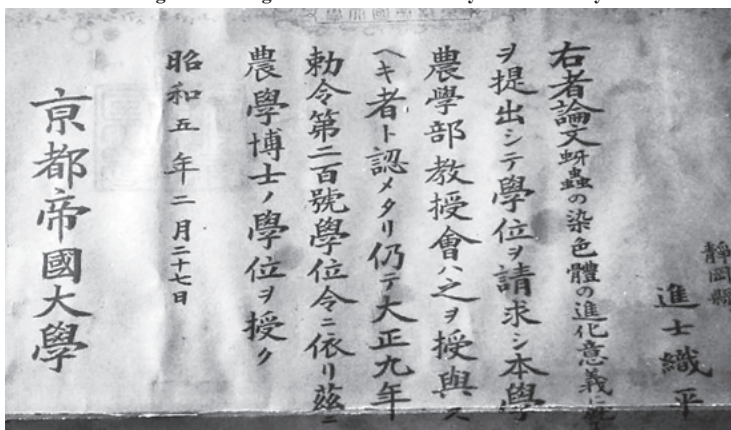 靜岡縣
進士織平
右者論文蚜蟲の染色體の進化意義に
ヲ提出シテ學位ヲ請求シ本學
農學部教授會ハ之ヲ授與ス
ヘキ者ト認メタリ仍テ大正九年
勅令第二百號學位令ニ依リ茲ニ
農學博士ノ學位ヲ授ク
昭和五年二月二十七日
京都帝國大學